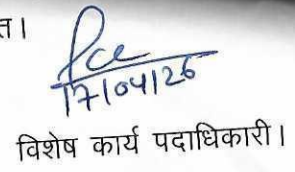 त।
17/04/26
विशेष कार्य पदाधिकारी।